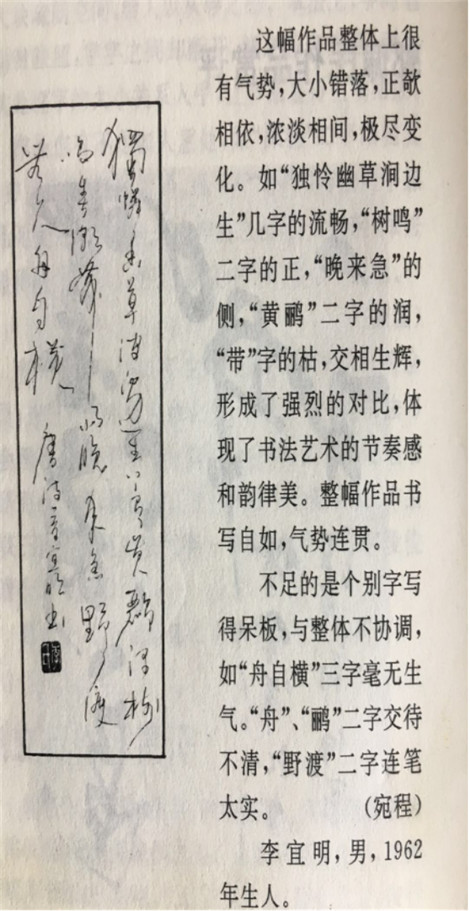 獨憐幽草澗邊生上有黄鸝深樹
鳴春潮帶雨晚来急野渡
無人舟自横 唐詩一首宜明书
这幅作品整体上很
有气势，大小错落，正欹
相依，浓淡相间，极尽变
化。如“独怜幽草涧边
生”几字的流畅，“树鸣”
二字的正，“晚来急”的
侧，“黄鹂”二字的润，
“带”字的枯，交相生辉，
形成了强烈的对比，体
现了书法艺术的节奏感
和韵律美。整幅作品书
写自如，气势连贯。
不足的是个别字写
得呆板，与整体不协调，
如“舟自横”三字毫无生
气。“舟”、“鹂”二字交待
不清，“野渡”二字连笔
太实。 （宛程）
李宜明，男，1962
年生人。